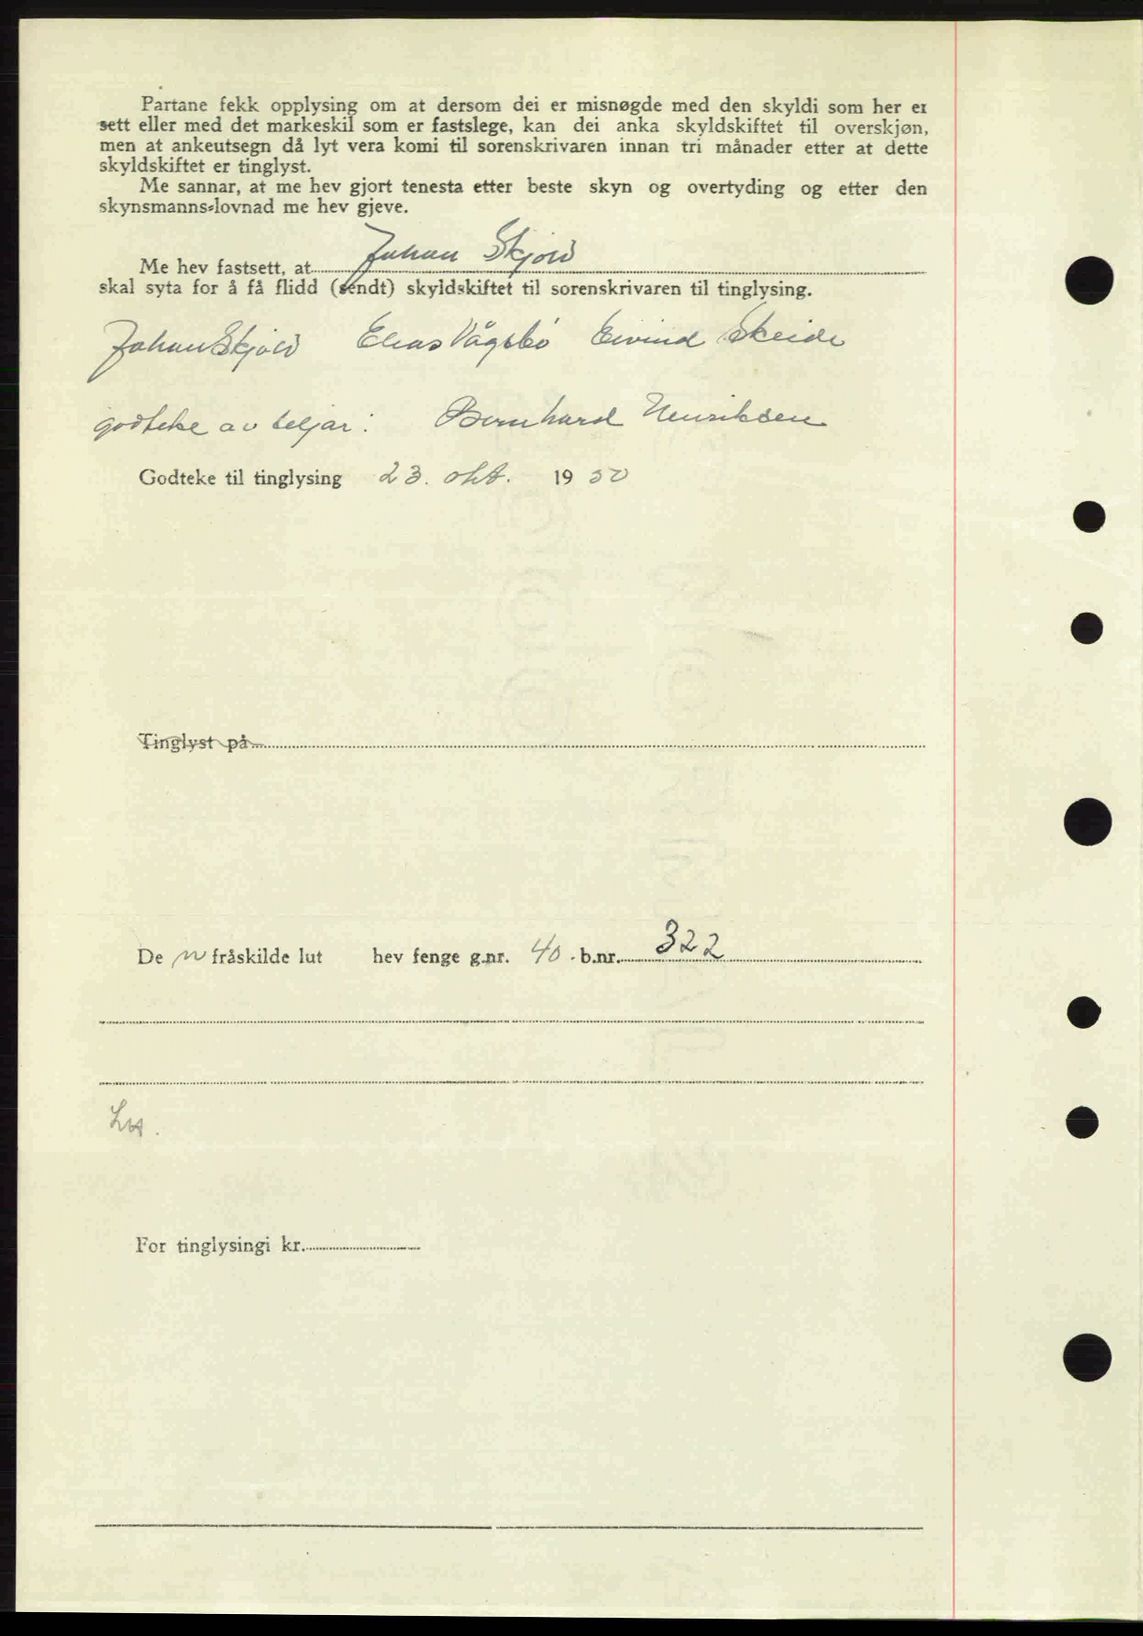 Partane fekk opplysing om at dersom dei er misnøgde med den skyldi som her er
sett eller med det markeskil som er fastslege, kan dei anka skyldskiftet til overskjøn,
men at ankeutsegn då lyt vera komi til sorenskrivaren innan tri månader etter at dette
skyldskiftet er tinglyst.
Me sannar, at me hev gjort tenesta etter beste skyn og overtyding og etter den
skynsmanns-lovnad me hev gjeve.
Me hev fastsett, at Johan Skjold
skal syta for å få flidd (sendt) skyldskiftet til sorenskrivaren til tinglysing.
Johan Skjold Elias Vågsbö Eivind Skeide
godteke av seljar: Bernhard Henriksen
Godteke til tinglysing 23. okt. 1950
Tinglyst på
De n fråskilde lut hev fenge g.nr. 40 b.nr. 322
For tinglysingi kr.